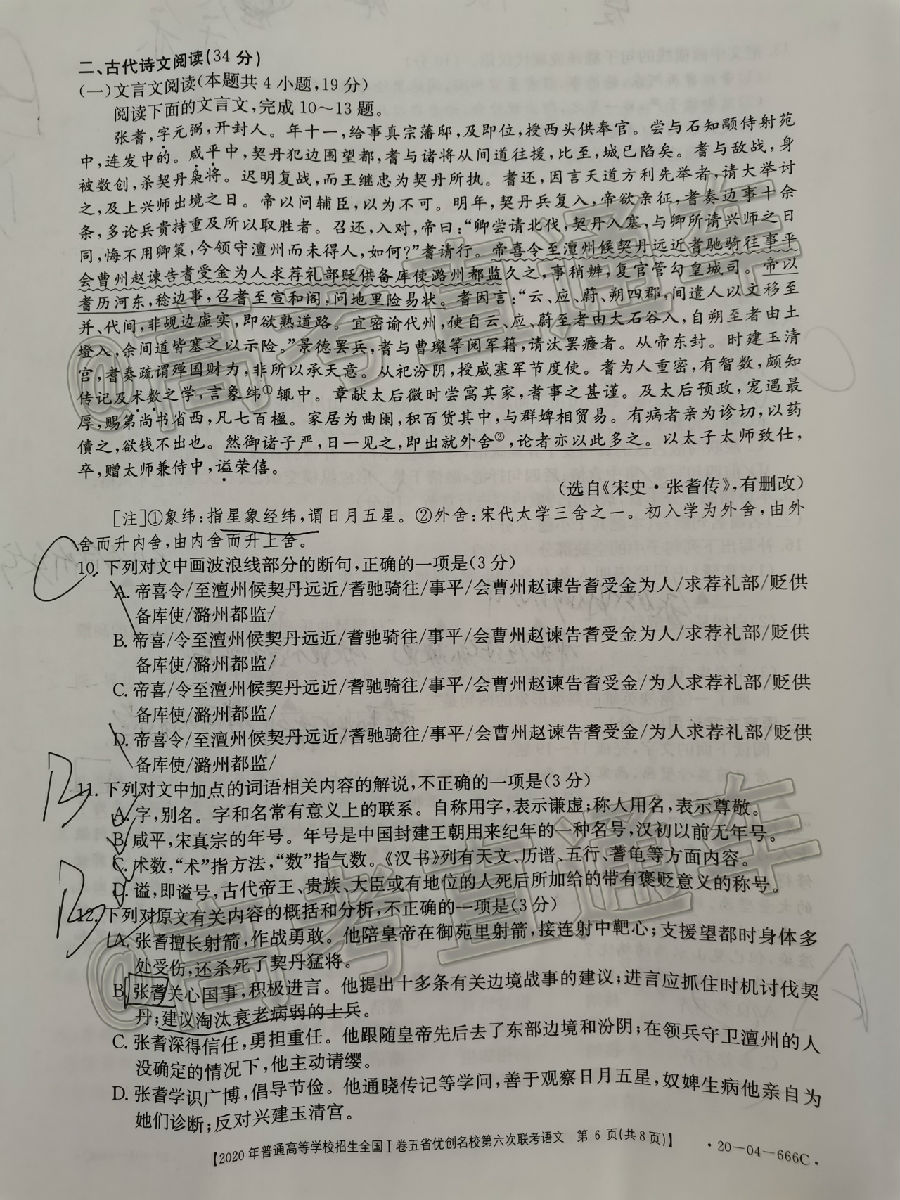 二、古代诗文阅读(34分)
(一)文言文阅读(本题共4小题,19分)
阅读下面的文言文,完成10～13题。
张耆,字元弼,开封人。年十一,给事真宗藩邸,及即位,授西头供奉官。尝与石知颙侍射苑
中,连发中的。咸平中,契丹犯边围望都,耆与诸将从间道往援,比至,城已陷矣。耆与敌战,身
被数创,杀契丹枭将。迟明复战,而王继忠为契丹所执。耆还,因言天道方利先举者,请大举讨
之,及上兴师出境之日。帝以问辅臣,以为不可。明年,契丹兵复入,帝欲亲征,耆奏边事十余
条,多论兵贵持重及所以取胜者。召还,入对,帝曰:“卿尝请北伐,契丹入塞,与卿所请兴师之日
同,悔不用卿策,今领守澶州而未得人,如何?”耆请行。帝喜令至澶州候契丹远近耆驰骑往事平
会曹州赵谏告耆受金为人求荐礼部贬供备库使潞州都监久之,事稍辨,复官管勾皇城司。帝以
耆历河东,稔边事,召耆至宣和阁,问地里险易状。耆因言:“云、应、蔚、朔四郡,间遣人以文移至
并、代间,非觇边虚实,即欲熟道路。宜密谕代州,使自云、应、蔚至者由大石谷入,自朔至者由土
墱入,余间道皆塞之以示险。”景德罢兵,耆与曹璨等阅军籍,请汰罢癃者。从帝东封。时建玉清
宫,耆奏疏谓殚国财力,非所以承天意。从祀汾阴,授威塞军节度使。耆为人重密,有智数,颇知
传记及术数之学,言象纬①辄中。章献太后微时尝寓其家,耆事之甚谨。及太后预政,宠遇最
厚,赐第尚书省西,凡七百楹。家居为曲阑,积百货其中,与群婢相贸易。有病者亲为诊切,以药
儥之,欲钱不出也。然御诸子严,日一见之,即出就外舍②,论者亦以此多之。以太子太师致仕,
卒,赠太师兼侍中,谥荣僖。
(选自《宋史·张耆传》,有删改)
[注]①象纬:指星象经纬,谓日月五星。②外舍:宋代太学三舍之一。初入学为外舍,由外
舍而升内舍,由内舍而升上舍。
10.下列对文中画波浪线部分的断句,正确的一项是(3分)
A.帝喜令/至澶州候契丹远近/耆驰骑往/事平/会曹州赵谏告耆受金为人/求荐礼部/贬供
备库使/潞州都监/
B.帝喜/令至澶州候契丹远近/耆驰骑往/事平/会曹州赵谏告耆受金为人/求荐礼部/贬供
备库使/潞州都监/
C.帝喜/令至澶州候契丹远近/耆驰骑往/事平/会曹州赵谏告耆受金/为人求荐礼部/贬供
备库使/潞州都监/
D.帝喜令/至澶州候契丹远近/耆驰骑往/事平/会曹州赵谏告耆受金/为人求荐礼部/贬供
备库使/潞州都监/
11.下列对文中加点的词语相关内容的解说,不正确的一项是(3分)
A.字,别名。字和名常有意义上的联系。自称用字,表示谦虚;称人用名,表示尊敬。
B.咸平,宋真宗的年号。年号是中国封建王朝用来纪年的一种名号,汉初以前无年号。
C.术数,“术”指方法,“数”指气数。《汉书》列有天文、历谱、五行、蓍龟等方面内容。
D.谥,即谥号,古代帝王、贵族、大臣或有地位的人死后所加给的带有褒贬意义的称号。
12.下列对原文有关内容的概括和分析,不正确的一项是(3分)
A.张耆擅长射箭,作战勇敢。他陪皇帝在御苑里射箭,接连射中靶心;支援望都时身体多
处受伤,还杀死了契丹猛将。
B.张耆关心国事,积极进言。他提出十多条有关边境战事的建议;进言应抓住时机讨伐契
丹;建议淘汰衰老病弱的士兵。
C.张耆深得信任,勇担重任。他跟随皇帝先后去了东部边境和汾阴;在领兵守卫澶州的人
没确定的情况下,他主动请缨。
D.张耆学识广博,倡导节俭。他通晓传记等学问,善于观察日月五星,奴婢生病他亲自为
她们诊断;反对兴建玉清宫。
【2020年普通高等学校招生全国Ⅰ卷五省优创名校第六次联考语文 第6页(共8页)】 ·20-04-666C·
@高考直通车
@高考直通车